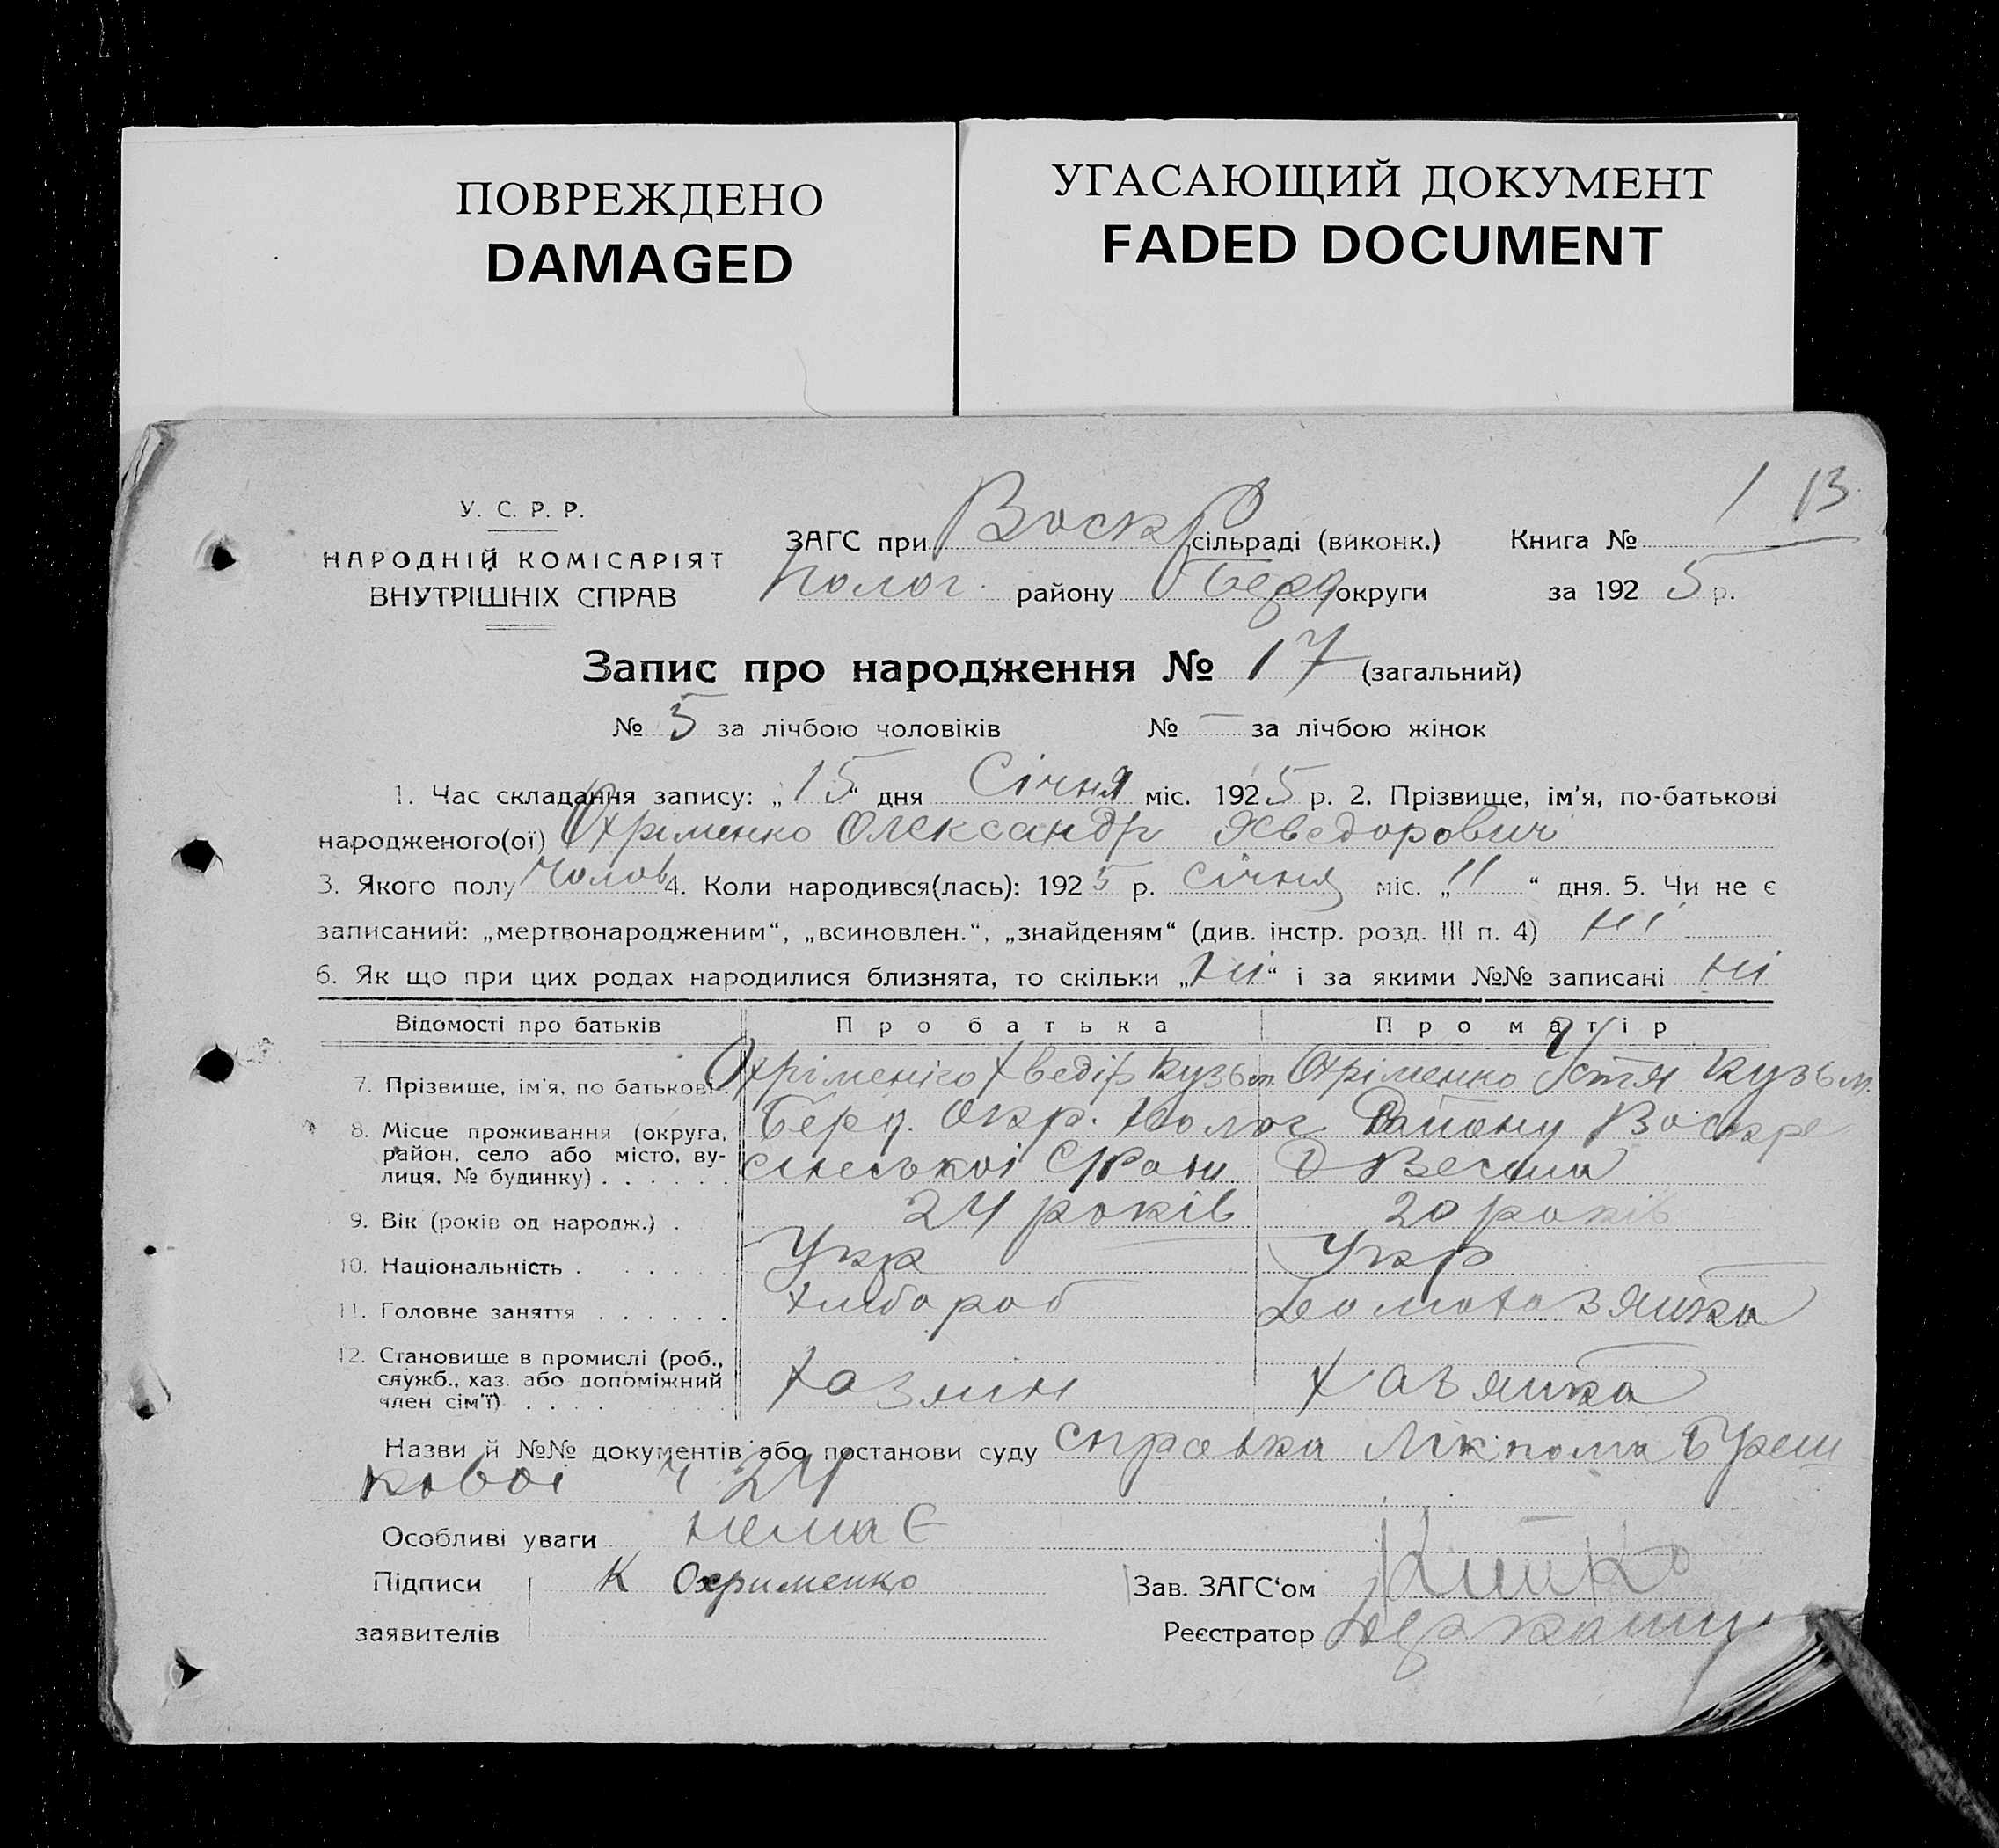 ПОВРЕЖДЕНО
DAMAGED
УГАСАЮЩИЙ ДОКУМЕНТ
FADED DOCUMENT
1 13
У. С. Р. Р.
НАРОДНІЙ КОМІСАРІЯТ
ВНУТРІШНІХ СПРАВ
ЗАГС при Воскр сільраді (виконк.) Книга №
Полог. району Берд округи за 1925 р.
Запис про народження № 17 (загальний)
№ 5 за лічбою чоловіків № — за лічбою жінок
1. Час складання запису: „15“ дня Січня міс. 1925 р. 2. Прізвище, ім’я, по-батькові
народженого(ої) Охріменко Олександр Хведорович
3. Якого полу Чолов 4. Коли народився(лась): 1925 р. січня міс. „11“ дня. 5. Чи не є
записаний: „мертвонародженим“, „всиновлен.“, „знайденям“ (див. інстр. розд. III п. 4) ні
6. Як що при цих родах народилися близнята, то скільки „ні“ і за якими №№ записані ні
Відомості про батьків Про батька Про матір
7. Прізвище, ім’я, по батькові. Охріменко Хведір Кузьм. Охріменко Устя Кузьм.
8. Місце проживання (округа, Берд. Окр. Полог. Району Воскре
район, село або місто, ву-
лиця, № будинку) . . . . . . сінської С/Ради
9. Вік (років од народж.) . 24 років 20 років
10. Національність . . . . Укр Укр
11. Головне заняття . . . . . . Хлібороб Домохазяйка
12. Становище в промислі (роб.,
служб., хаз. або допоміжний Хазяин Хазяйка
член сім’ї) . . . .
Назви й №№ документів або постанови суду справка Лікпома Буреш
кової ч 24
Особливі уваги немає
Підписи К Охрименко Зав. ЗАГС‘ом
заявителів Реєстратор